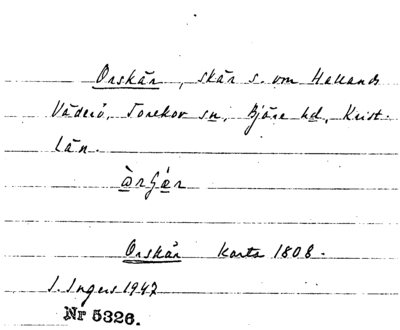 Orskär, skär s. om Hallands
Väderö, Torekov sn, Bjäre hd, Krist.
län.
Orskär Karta 1808.
I. Ingers 1947
Nr 5326.